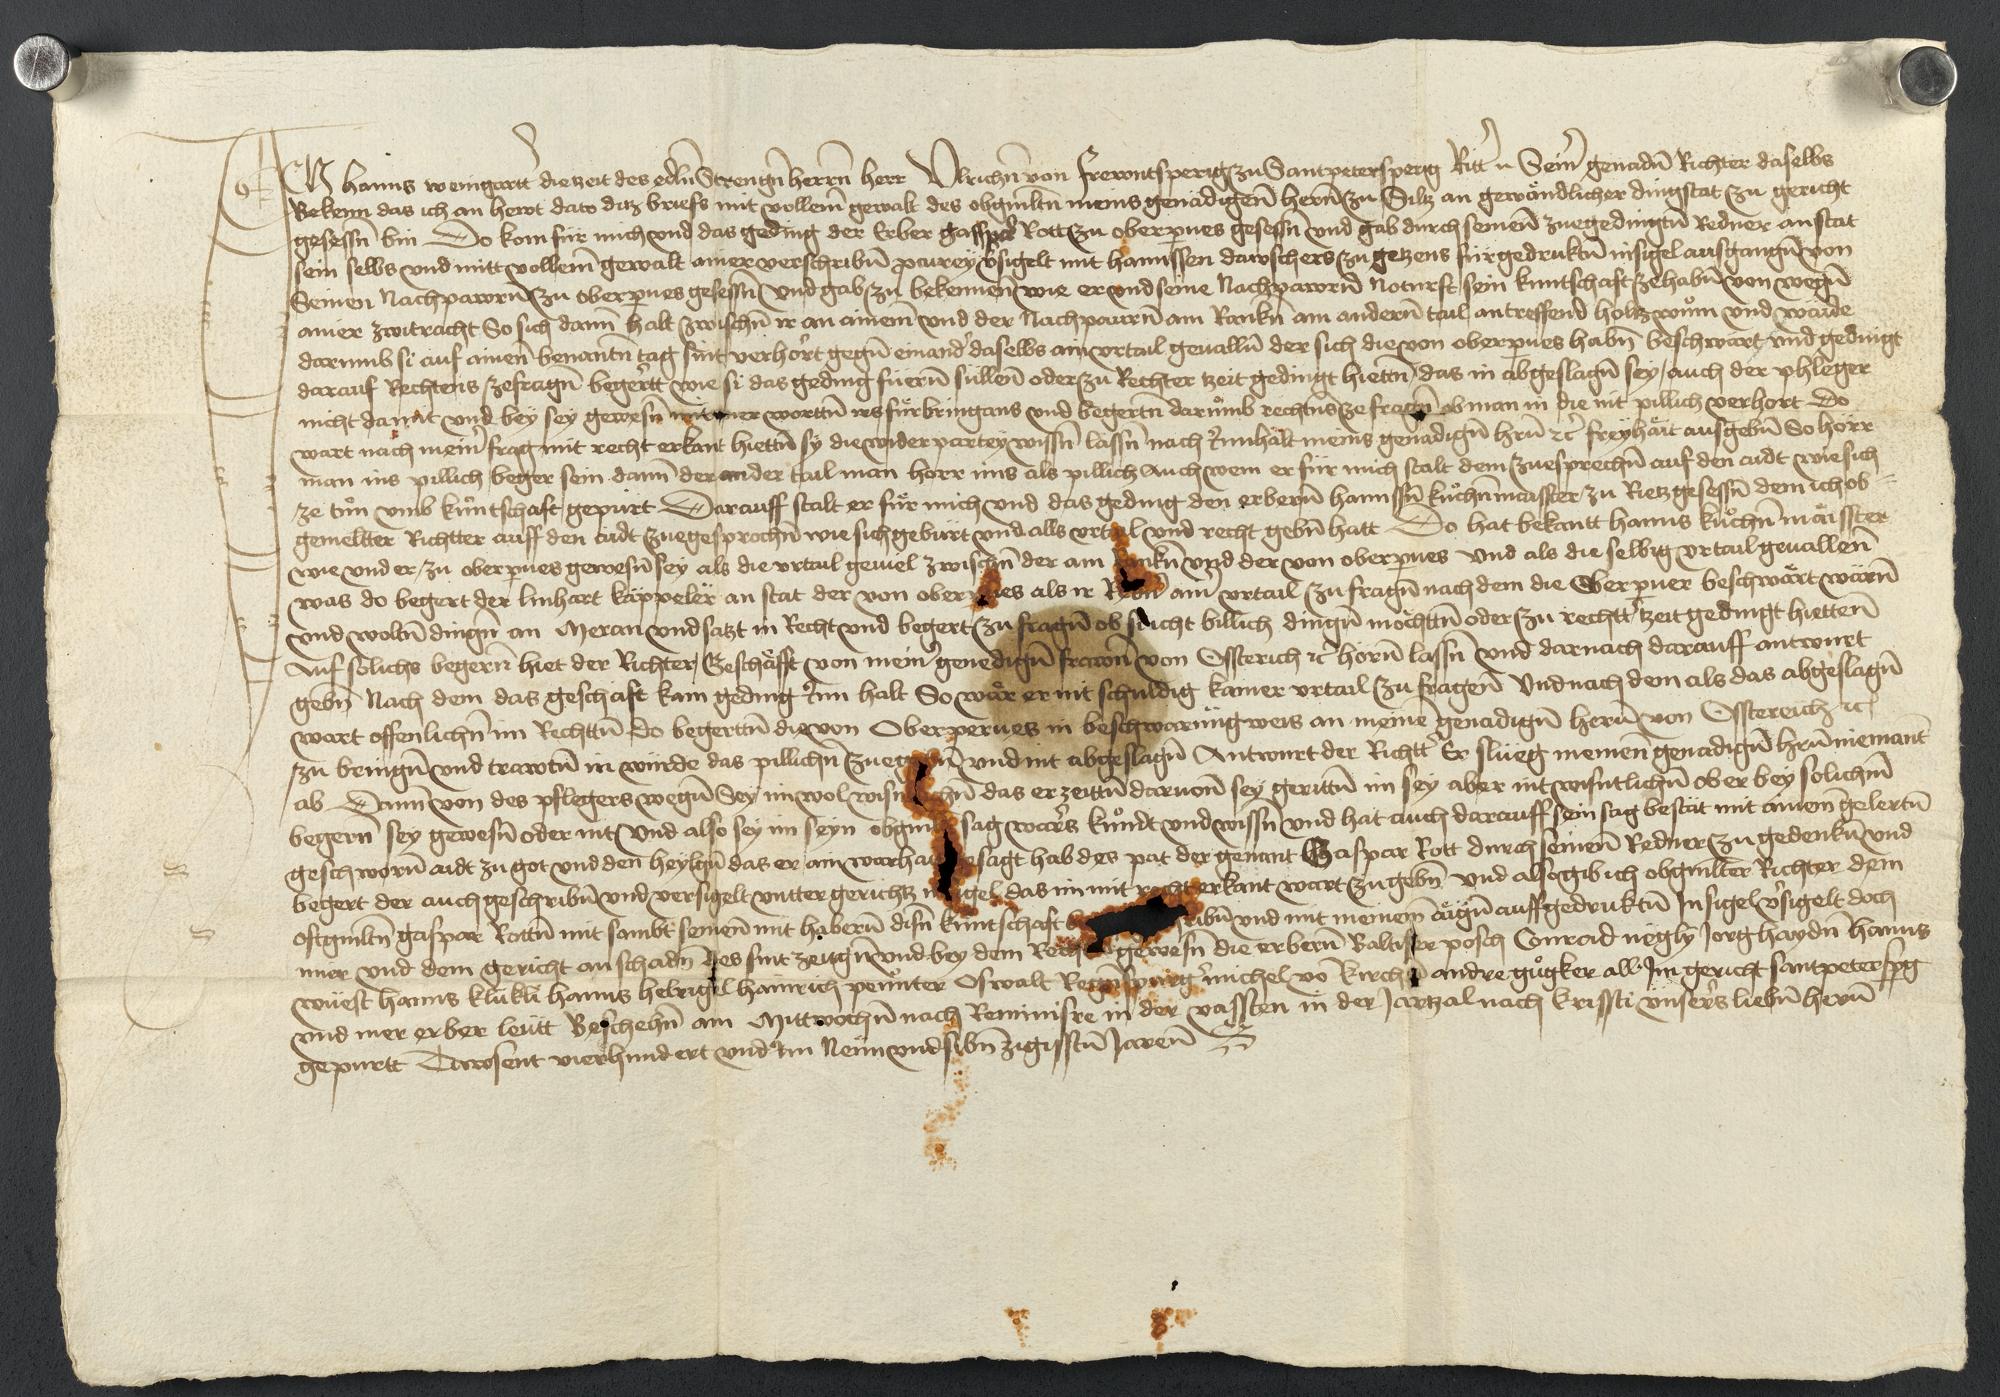 Ich hanns weingartt die zeit des edln Strengn herrn herr Ulrichn von Frewntsperig zu Santpetersperg Ritter Seinr genadn Richter daselbs
Bekenn das ich an hewt dato ditz briefs mit vollem gewalt des obgmltn meins genädigen hern zu Siltz an gewöndlicher dingstat zu gericht
gesessn bin Do kom für mich und das geding der Erber gasspar Rott zu oberpnes gesessn und gab durch seinen zuegedingtn Redner anstat
sein selbs und mitt vollem gewalt ainer verschribn procurey vsigelt mit hannssen dawschers zu getzens fürgedruktn insigel ausgangn von
Seinen Nachpawrn zu oberpnes gesessn und gab zu bekennen wie er und seine Nachpawrn Noturft sein kuntschaft ze habn von wegn
ainer zwitracht So sich dann halt zwischn ir an ainem und der Nachpaurn am Rankn am andern tail antreffend holtz wunn und waide
darumb si auf ainen benantn tag sint verhort gegn einand daselbs ain urtail geualln der sich die von oberpnes habn beschwart und gedingt
darauf Rechtens zefragn begertt wie si das geding füern sullen oder zu Rechter tzeit gedingt hiettn das in abgeslagn sey auch der phleger
nicht damit und bey sey gewesn mit mer worttn irs fürbringans und begertn darumb rechtns ze fragn ob man in die nit pillich verhort Do
wart nach meinr frag mit recht erkant hiettn sy die widerpartey wissn lassn nach Innhalt meins genadign hrn etc freyhait ausgebn So hörr
man ins pillich beger sein dann der ander tail man horr ins als pillich Auch wem er für mich stalt dem zuesprechn auf den aidt wie sich
ze tun umb kuntschaft gepürt Darauff stalt er für mich und das geding den erbern hannssn kuchnmaister zu Rietz gesessn dem ich ob
gemeltter Richtter auff den aidt zuegesprochn wie sich gebürt und alls urtail und recht gebn hatt Do hat bekantt hanns kuchnmaisster
wie und er zu oberpnes gewesn sey als die urtail geuiel zwischn der am Rankn und der von oberpnes und als die selbig urtail geuallen
was do begert der linhart käppeler an stat der von oberpnes als ir ain urtail zu fragn nach dem die Oberpner beschwärt wärn
und woltn dingn an Meran und satzt in Recht und begert zu fragn ob si nicht billich dingn möchttn oder zu rechttr tzeit gedingt hietten
Auf solichs begern hiet der Richter Geschäfft von meinr genedign frawn von Ossterich etc hörn lassn und darnach darauff antwurt
gebn Nach dem das geschäft kain geding Inn halt So wär er nit schuldig kainer urtail zu fragen Und nach dem als das abgeslagn
wart offenlichn im Rechttn Do begerttn die von Oberperues in beschwarung weis an meinen genadign hern von Osstereich etc
zu bringn und trawtn in würde das pillichn und nit abgeslagn Antwurt der Richttr Er slueg meinen genadign hrn niemant
ab Dann von des pflegers wegn Sey im wol das er zeittn daruon sey gerittn im sey aber nit wisntlichn ober bey solichm
begern sey gewesn oder nit Und also sey im seyn sag wars kundt und wissn und hat auch darauff sein sag bestät mit ainem gelertn
geschworn aidt zu got und den heylign das er ain warhait gesagt hab des pat der genant Gaspar Rott durch seinen Redner zu gedenkn und
begert der auch geschribn und versigelt untter gerichtz insigel das im mit recht erkant wart zu gebn und also gib ich obgmlter Richter dem
oftgmltn gaspar Rottn mit sambt seinen mit habern disn kuntschaft und mit meinem aign auffgedruktn Insigel vsigelt doch
mer und dem gericht an schadn Des sint zewgn und bey dem Rech gewesn die erbern Baltiser posch Conrad nëgly Jorg haydn hanns
wüest hanns kluklt hanns helrigel hainrich penntter Oswalt michel vo kirchn andre gugker all Im gericht santpetersperg
und mer erber leütt Beschehn am Mittwochn nach Reminisre in der vassten in der Jartzal nach kristi unsers liebn hern
gepurtt Tawsent vierhundert und Im Neun und sibnzigisstn Jaren